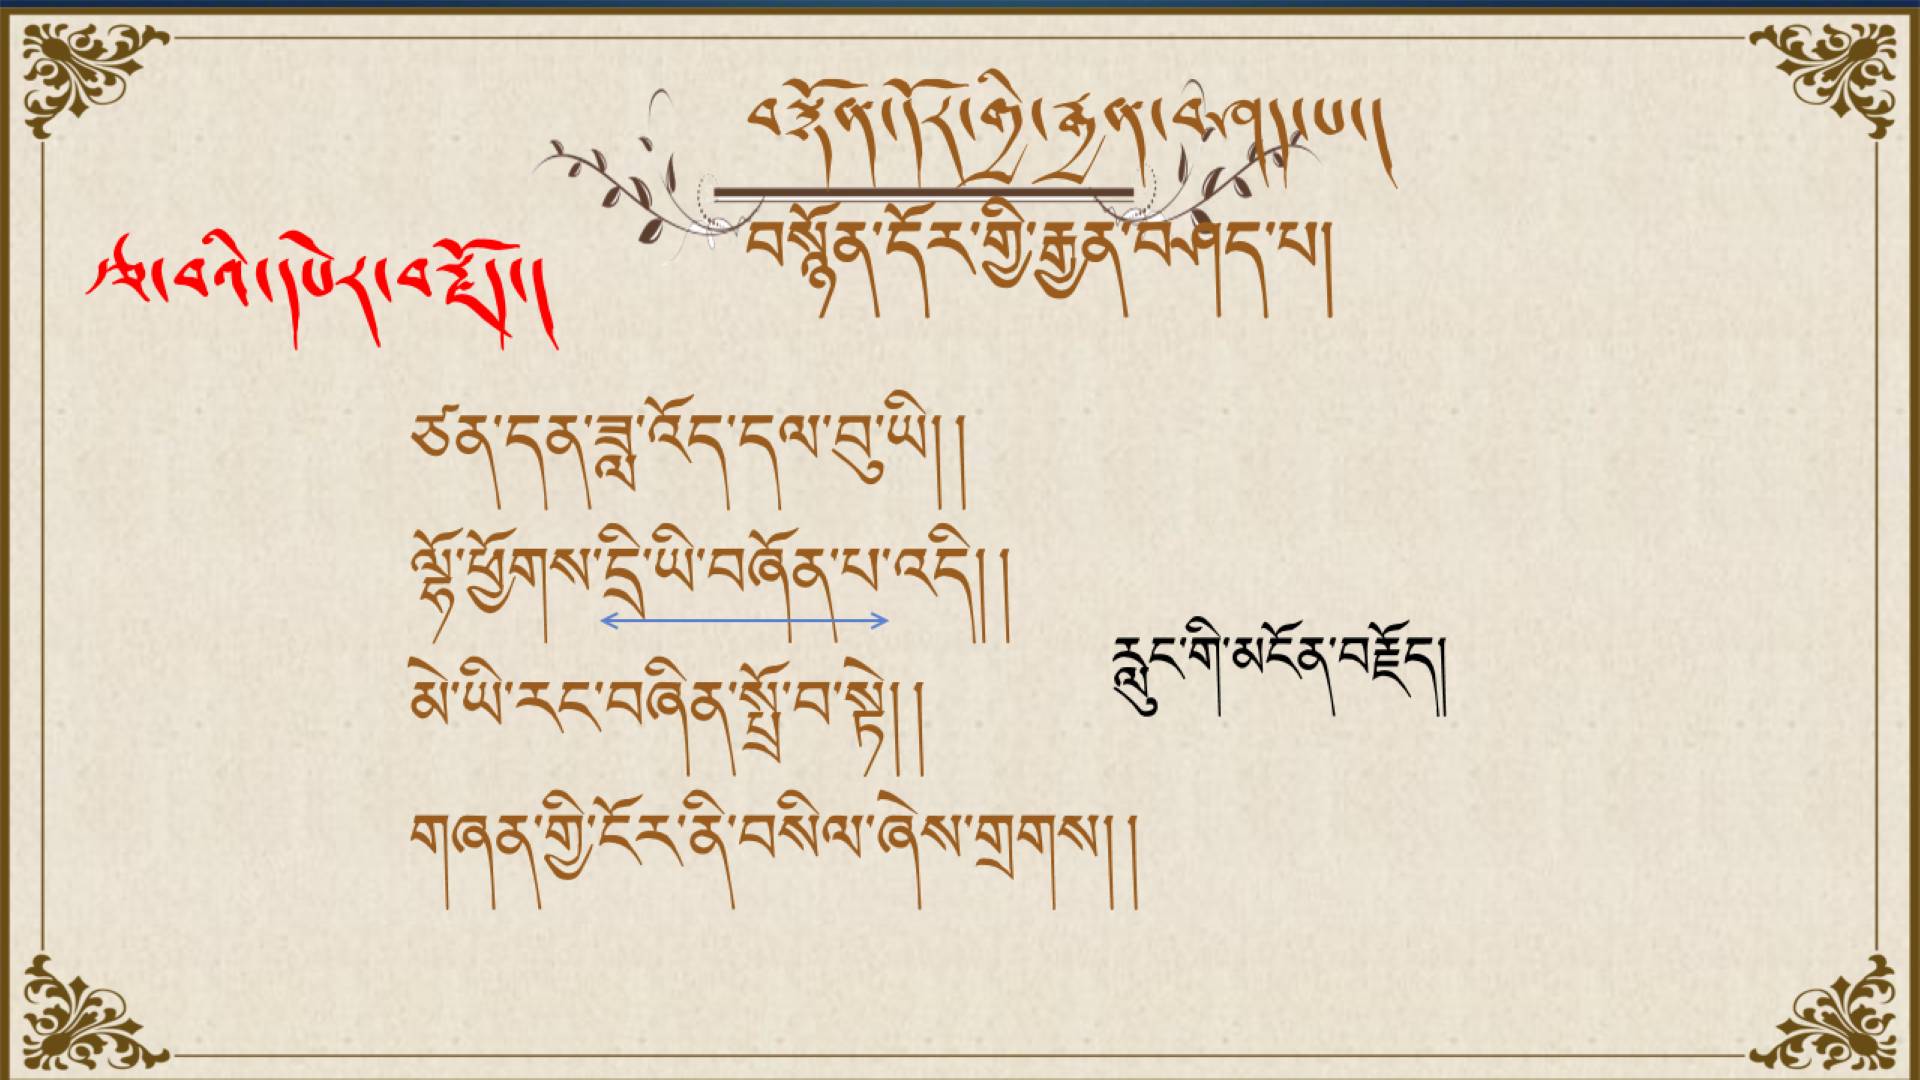 བསྙོན་དོར་གྱི་རྒྱན་བཤད་པ།
བསྙོན་དོར་གྱི་རྒྱན་བཤད་པ།
ཙན་དན་ཟླ་འོད་དལ་བུ་ཡི། །
ལྷོ་ཕྱོགས་དྲི་ཡི་བཞོན་པ་འདི། །
རླུང་གི་མངོན་བརྗོད།
མེ་ཡི་རང་བཞིན་སྤྲོ་བ་སྟེ། །
གཞན་གྱི་ངོར་ནི་བསིལ་ཞེས་གྲགས། །